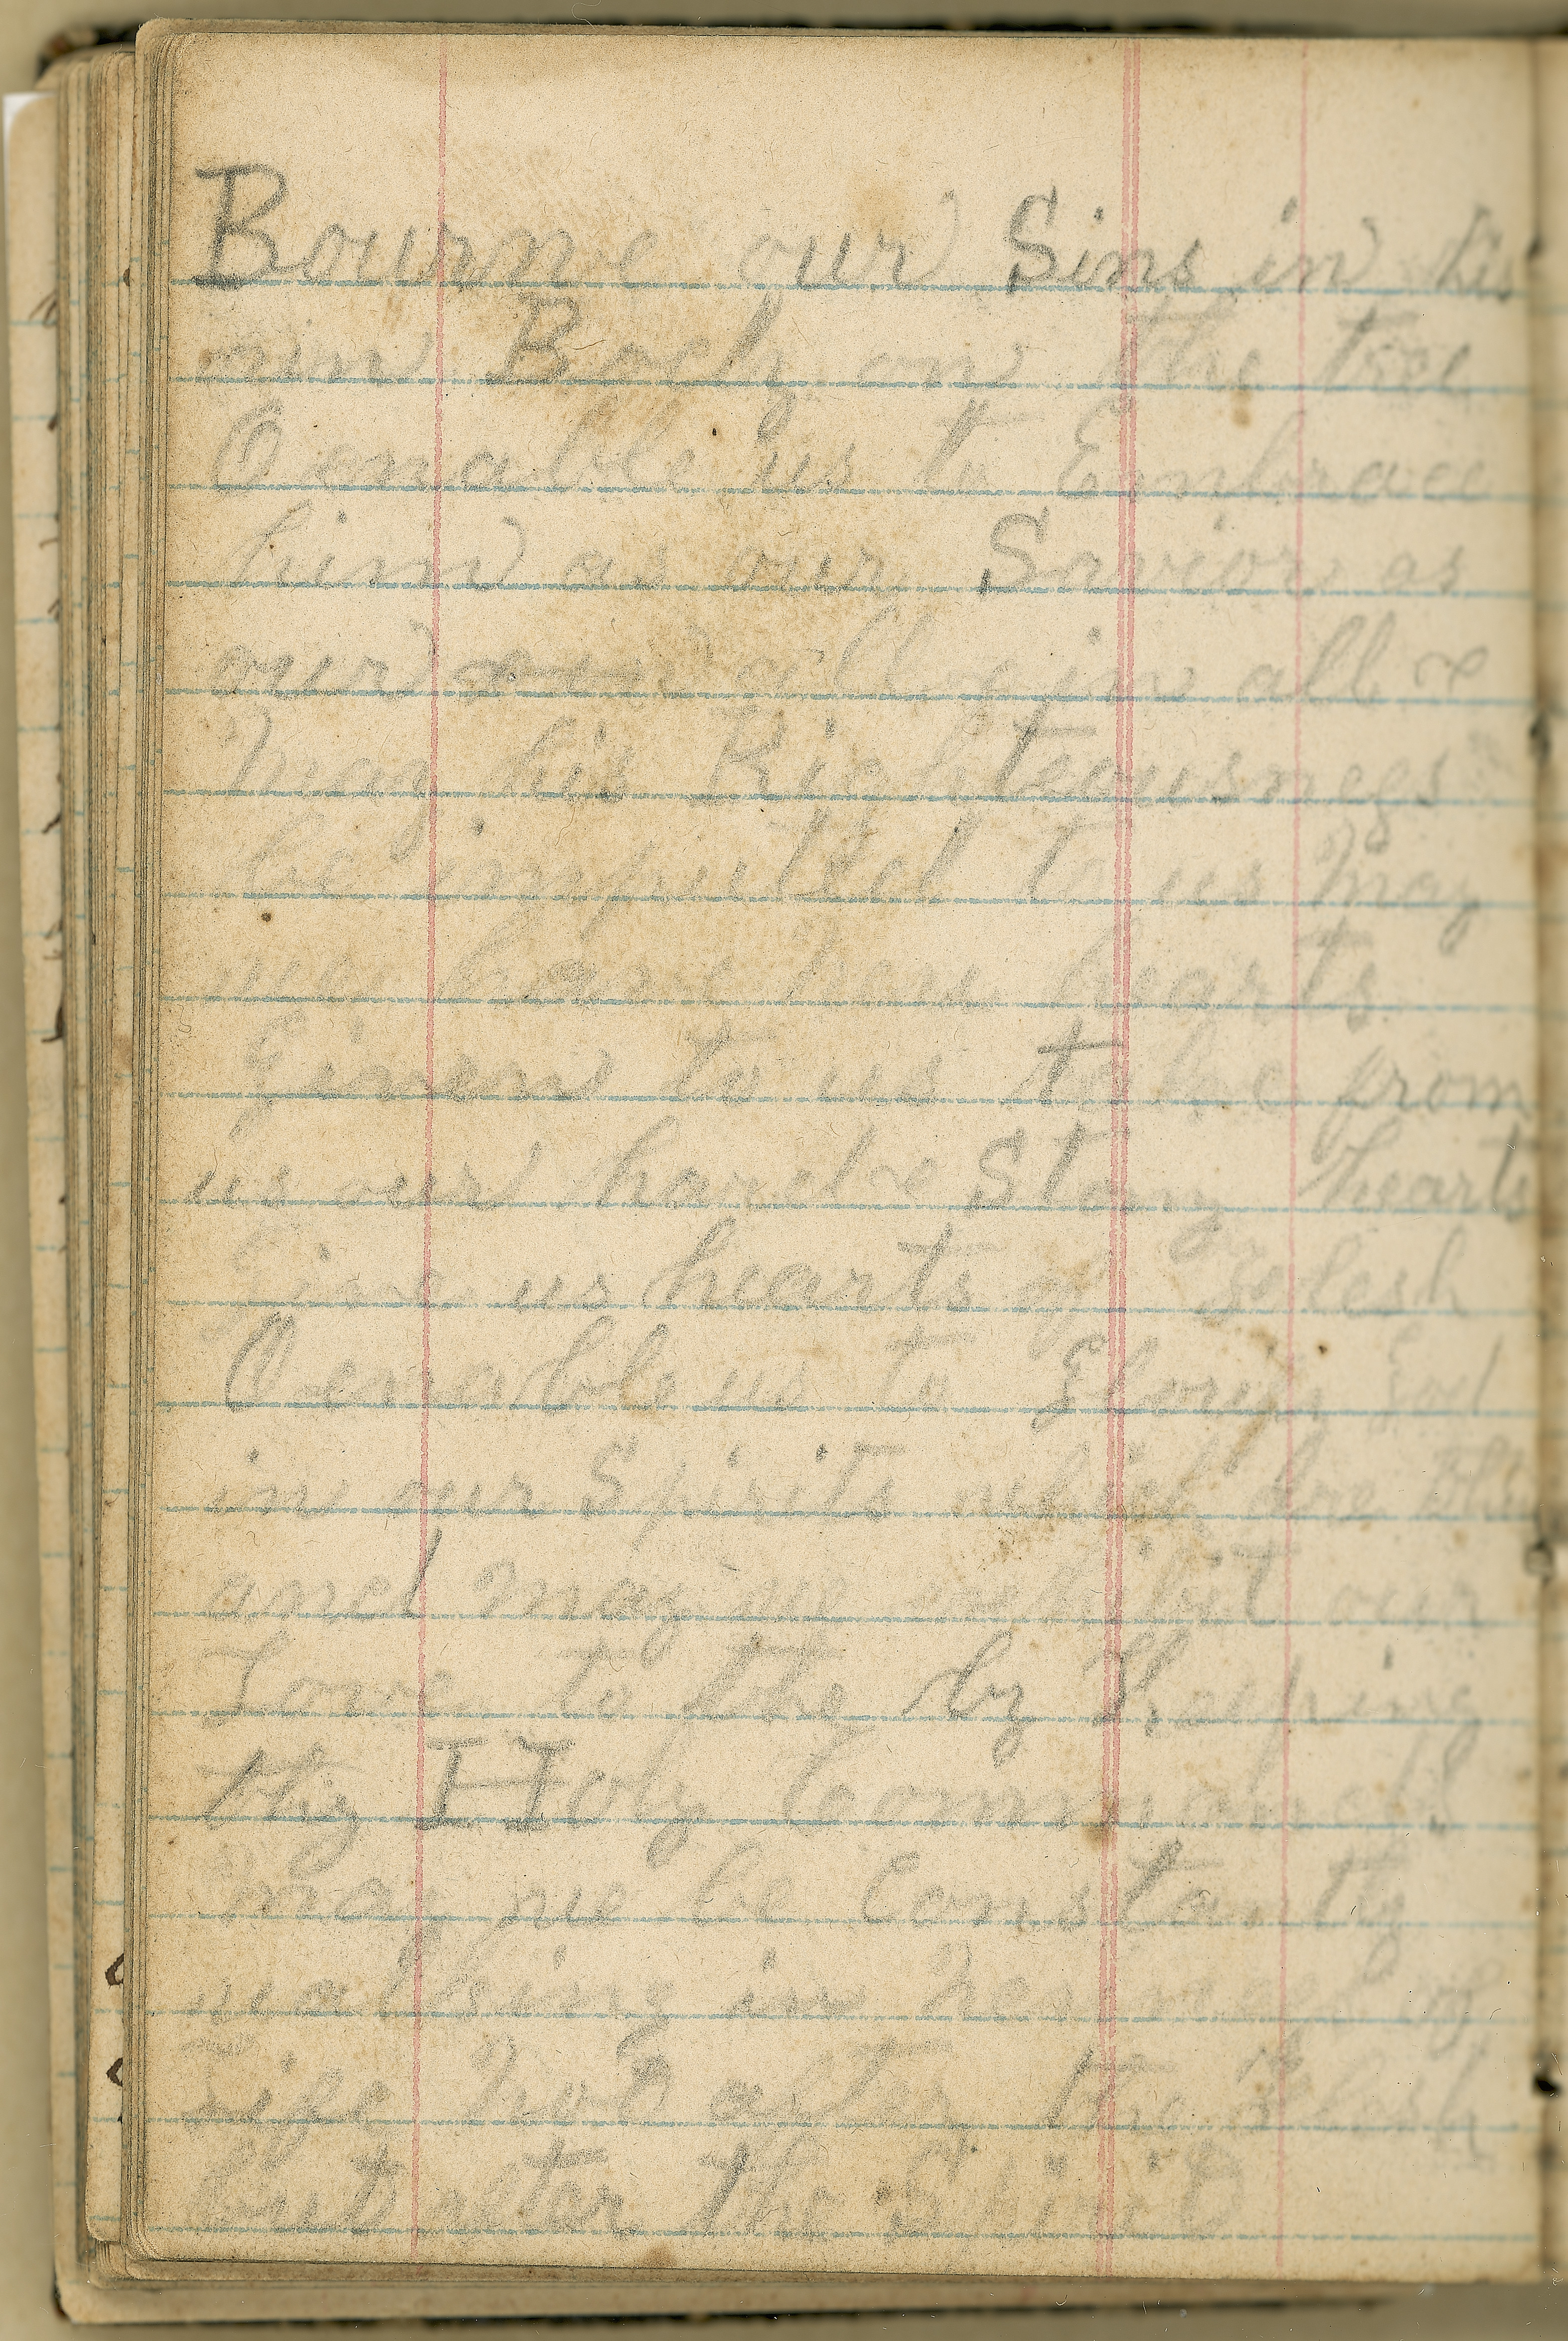 Bourne our Sins in his
own Body on the tree
O enable us to Embrace
him as our Savior as
our all in all &
may his Righteousness
be imputted to us may
we have new hearts
given to us take from
us our hard & Stony hearts
give us hearts of flesh
O enable us to Glorify God
in our Spirits which are thine
and may we exhibit our
Love to the by Keeping
thy Holy Commands
may we be Constantly
walking in newness of
Life not after the flesh
but after the Spirit